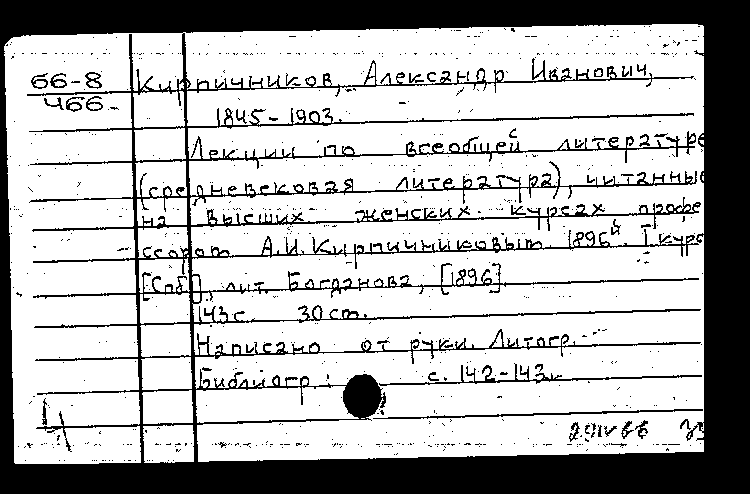 66-8 Кирпичников, Александр Иванович,
466- 1845-1903.
Лекции по всеобщей литературе
(средневековая литература), читанные
на высших женских курсах профе
ссором А.И.Кирпичниковым 1896й I курс
[Спб], лит. Богданова, [1896].
143с. 30 cm.
Написано от руки. Литогр.
Библиогр: с. 142-143.
4
29IV66